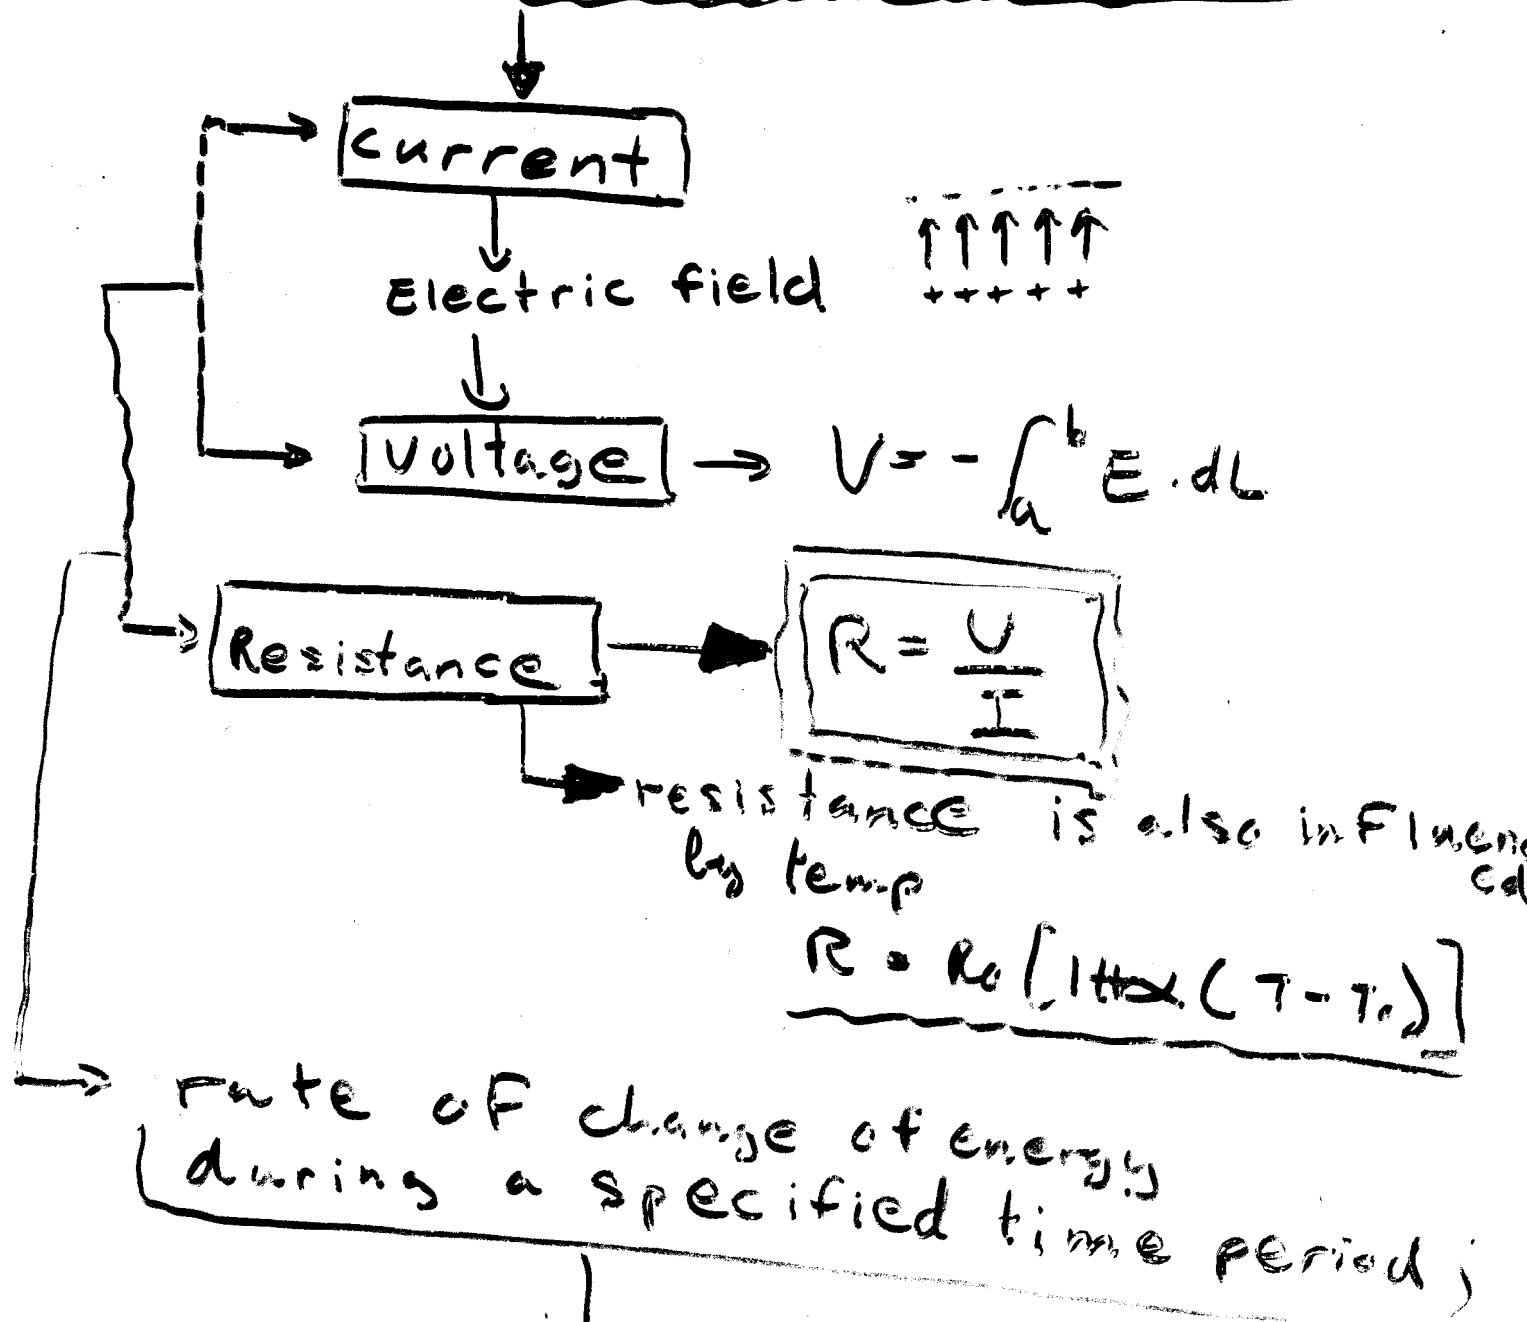 current
Electric field
- - - - - -
+ + + + +
Voltage → V = - ∫ₐᵇ E . dL
Resistance → R = U / I
resistance is also influen
ced
by temp
R = R₀ [1+α (T - T₀)]
rate of change of energy
during a specified time period;